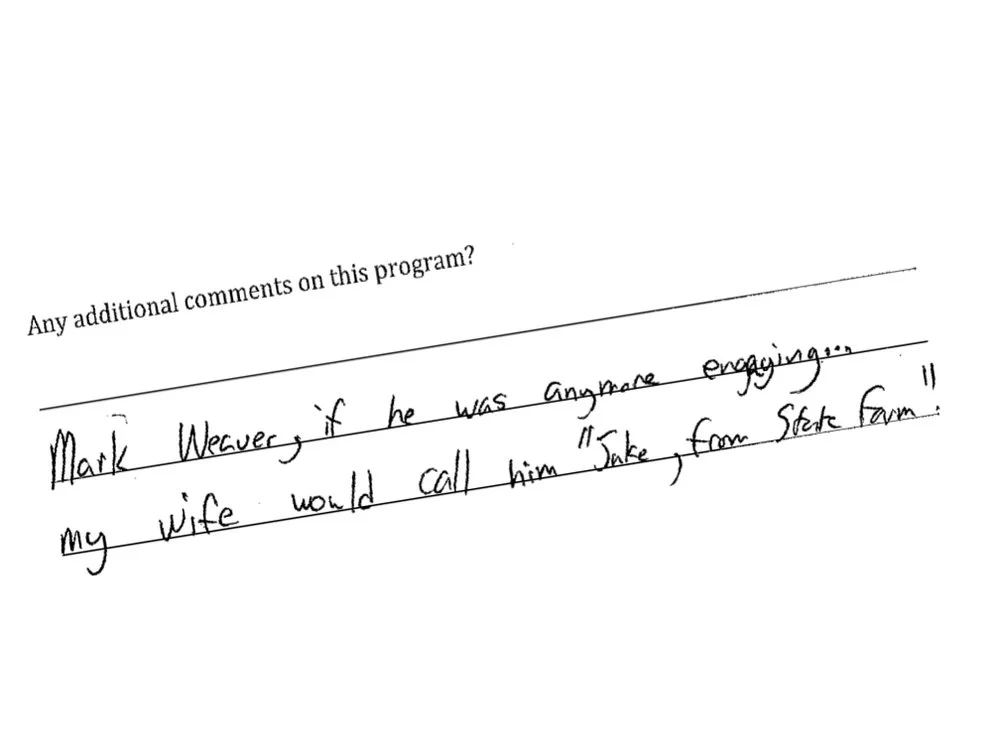 Any additional comments on this program?
Mark Weaver, if he was anymore engaging...
my wife would call him "Jake, from State Farm".